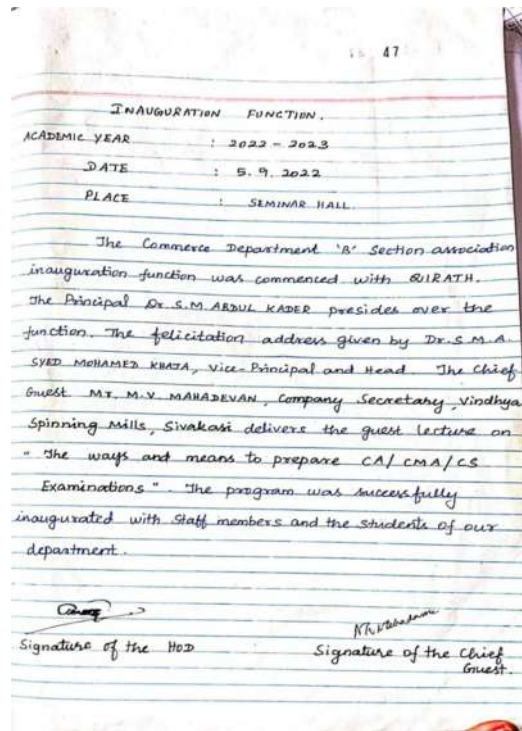 47
INAUGURATION FUNCTION.
ACADEMIC YEAR : 2022 - 2023
DATE : 5. 9. 2022
PLACE : SEMINAR HALL.
The Commerce Department 'B' Section association
inauguration function was commenced with QIRATH.
The Principal Dr. S.M. ABDUL KADER presides over the
function. The felicitation address given by Dr. S. M. A.
SYED MOHAMED KHAJA, Vice-Principal and Head. The Chief
Guest Mr. M.V MAHADEVAN, Company Secretary, Vindhya
Spinning Mills, Sivakasi delivers the guest lecture on
" The ways and means to prepare CA/ CMA/CS
Examinations ". The program was successfully
inaugurated with staff members and the students of our
department.
Signature of the HOD
Signature of the Chief
Guest.